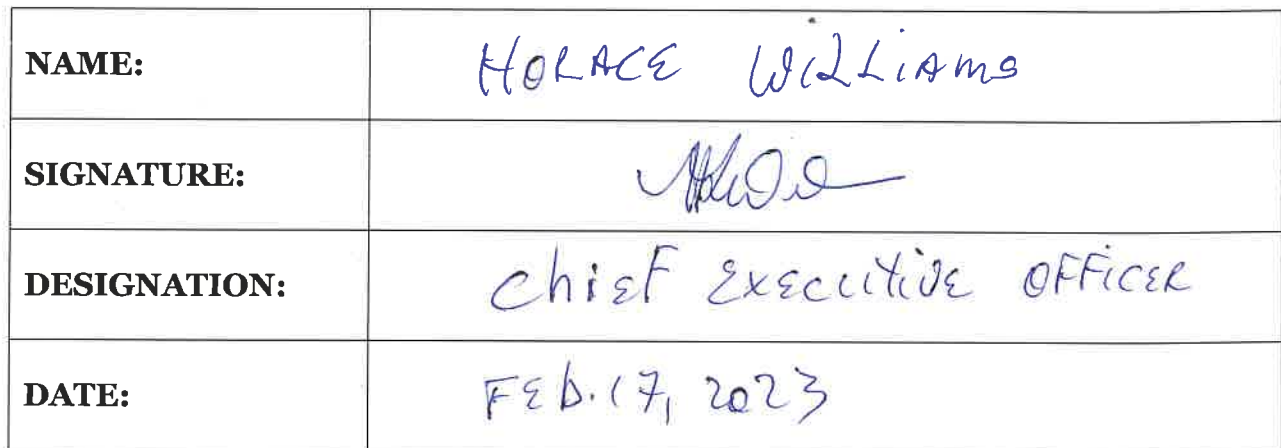 NAME: HORACE WILLIAMS
SIGNATURE:
DESIGNATION: Chief Executive Officer
DATE: FEb. 17, 2023